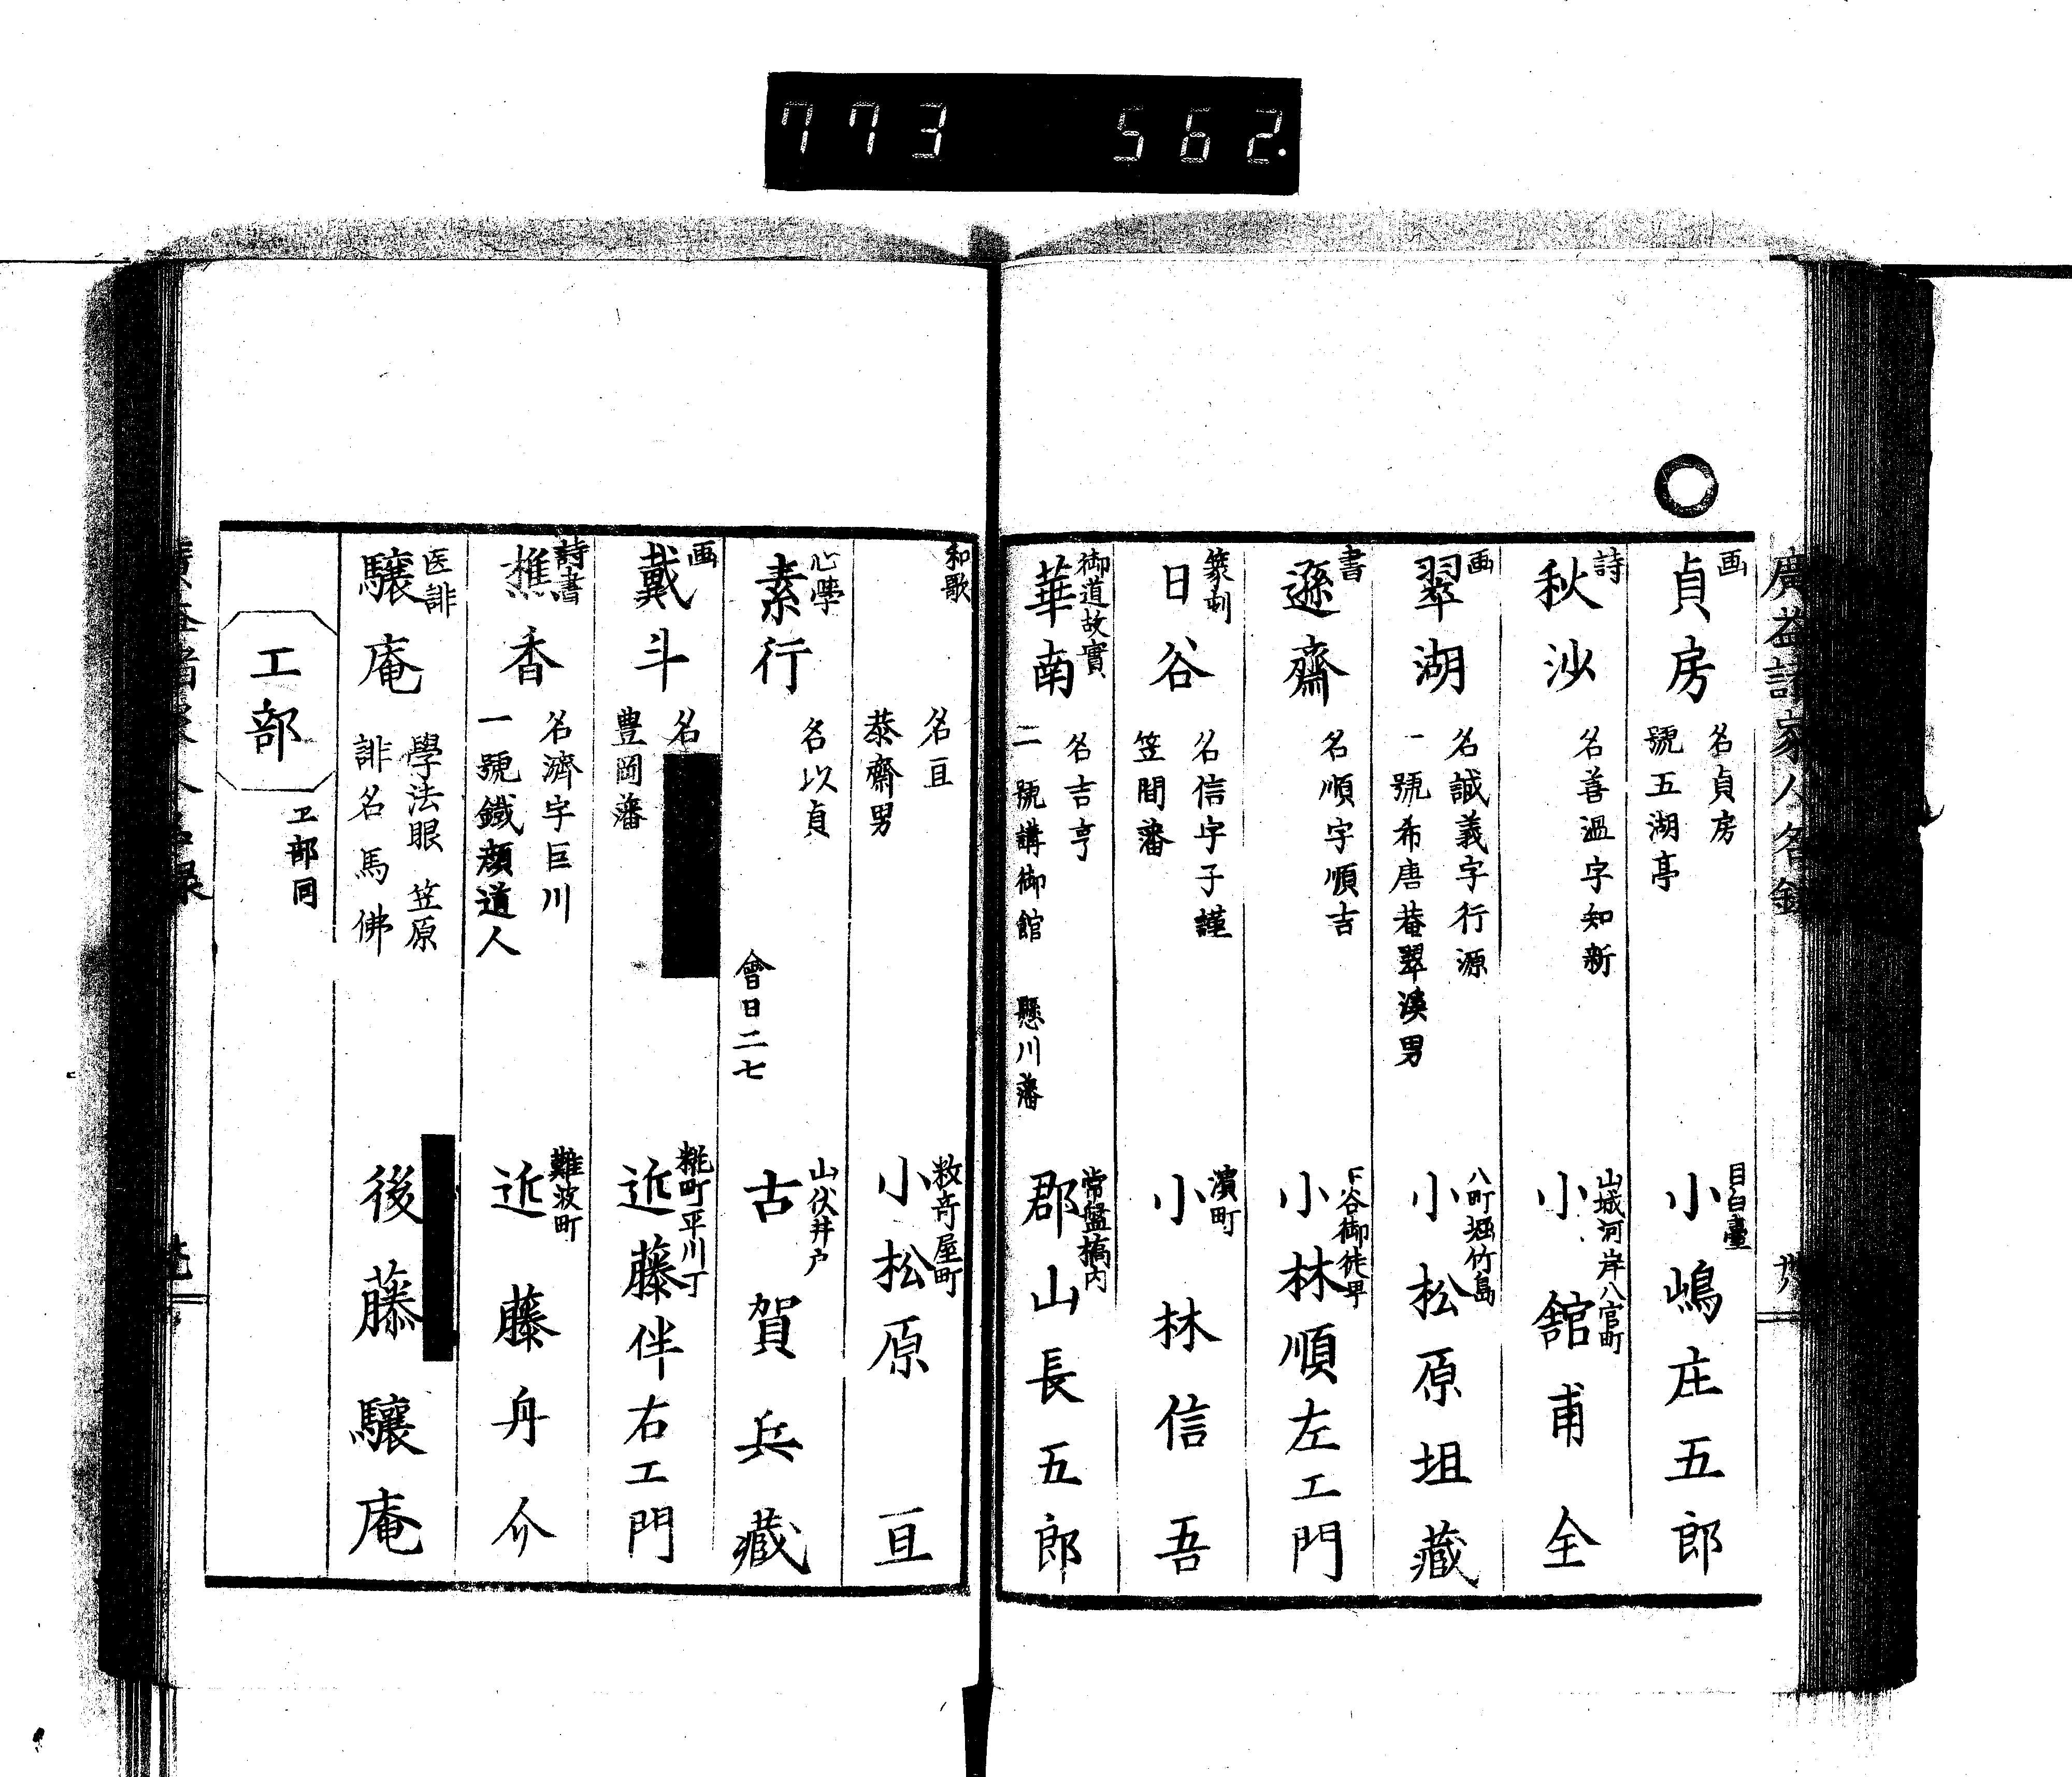 773 562.
廣益諸家人名録
画
貞房
名貞房
號五湖亭
目白臺
小嶋庄五郎
詩
秋沙
名善温字知新
山城河岸八官町
小舘甫全
画
翠湖
名誠義字行源
一號希唐菴翠溪男
八町堀竹島
小松原坦藏
書
遜齋
名順字順吉
下谷御徒甼
小林順左エ門
篆刻
日谷
名信字子謹
笠間藩
濵町
小林信吾
御道故實
華南
名吉亨
二號講御館 懸川藩
常盤橋内
郡山長五郎
和歌
名亘
恭齋男
数寄屋町
小松原亘
心學
素行
名以貞
會日二七
山伏井戸
古賀兵藏
画
戴斗
名
豊岡藩
糀町平川丁
近藤伴右エ門
詩書
樵香
名濟字巨川
一號鐵顔道人
難波町
近藤舟介
医誹
驤庵
學法眼笠原
誹名馬佛
後藤驤庵
工部
ヱ部同